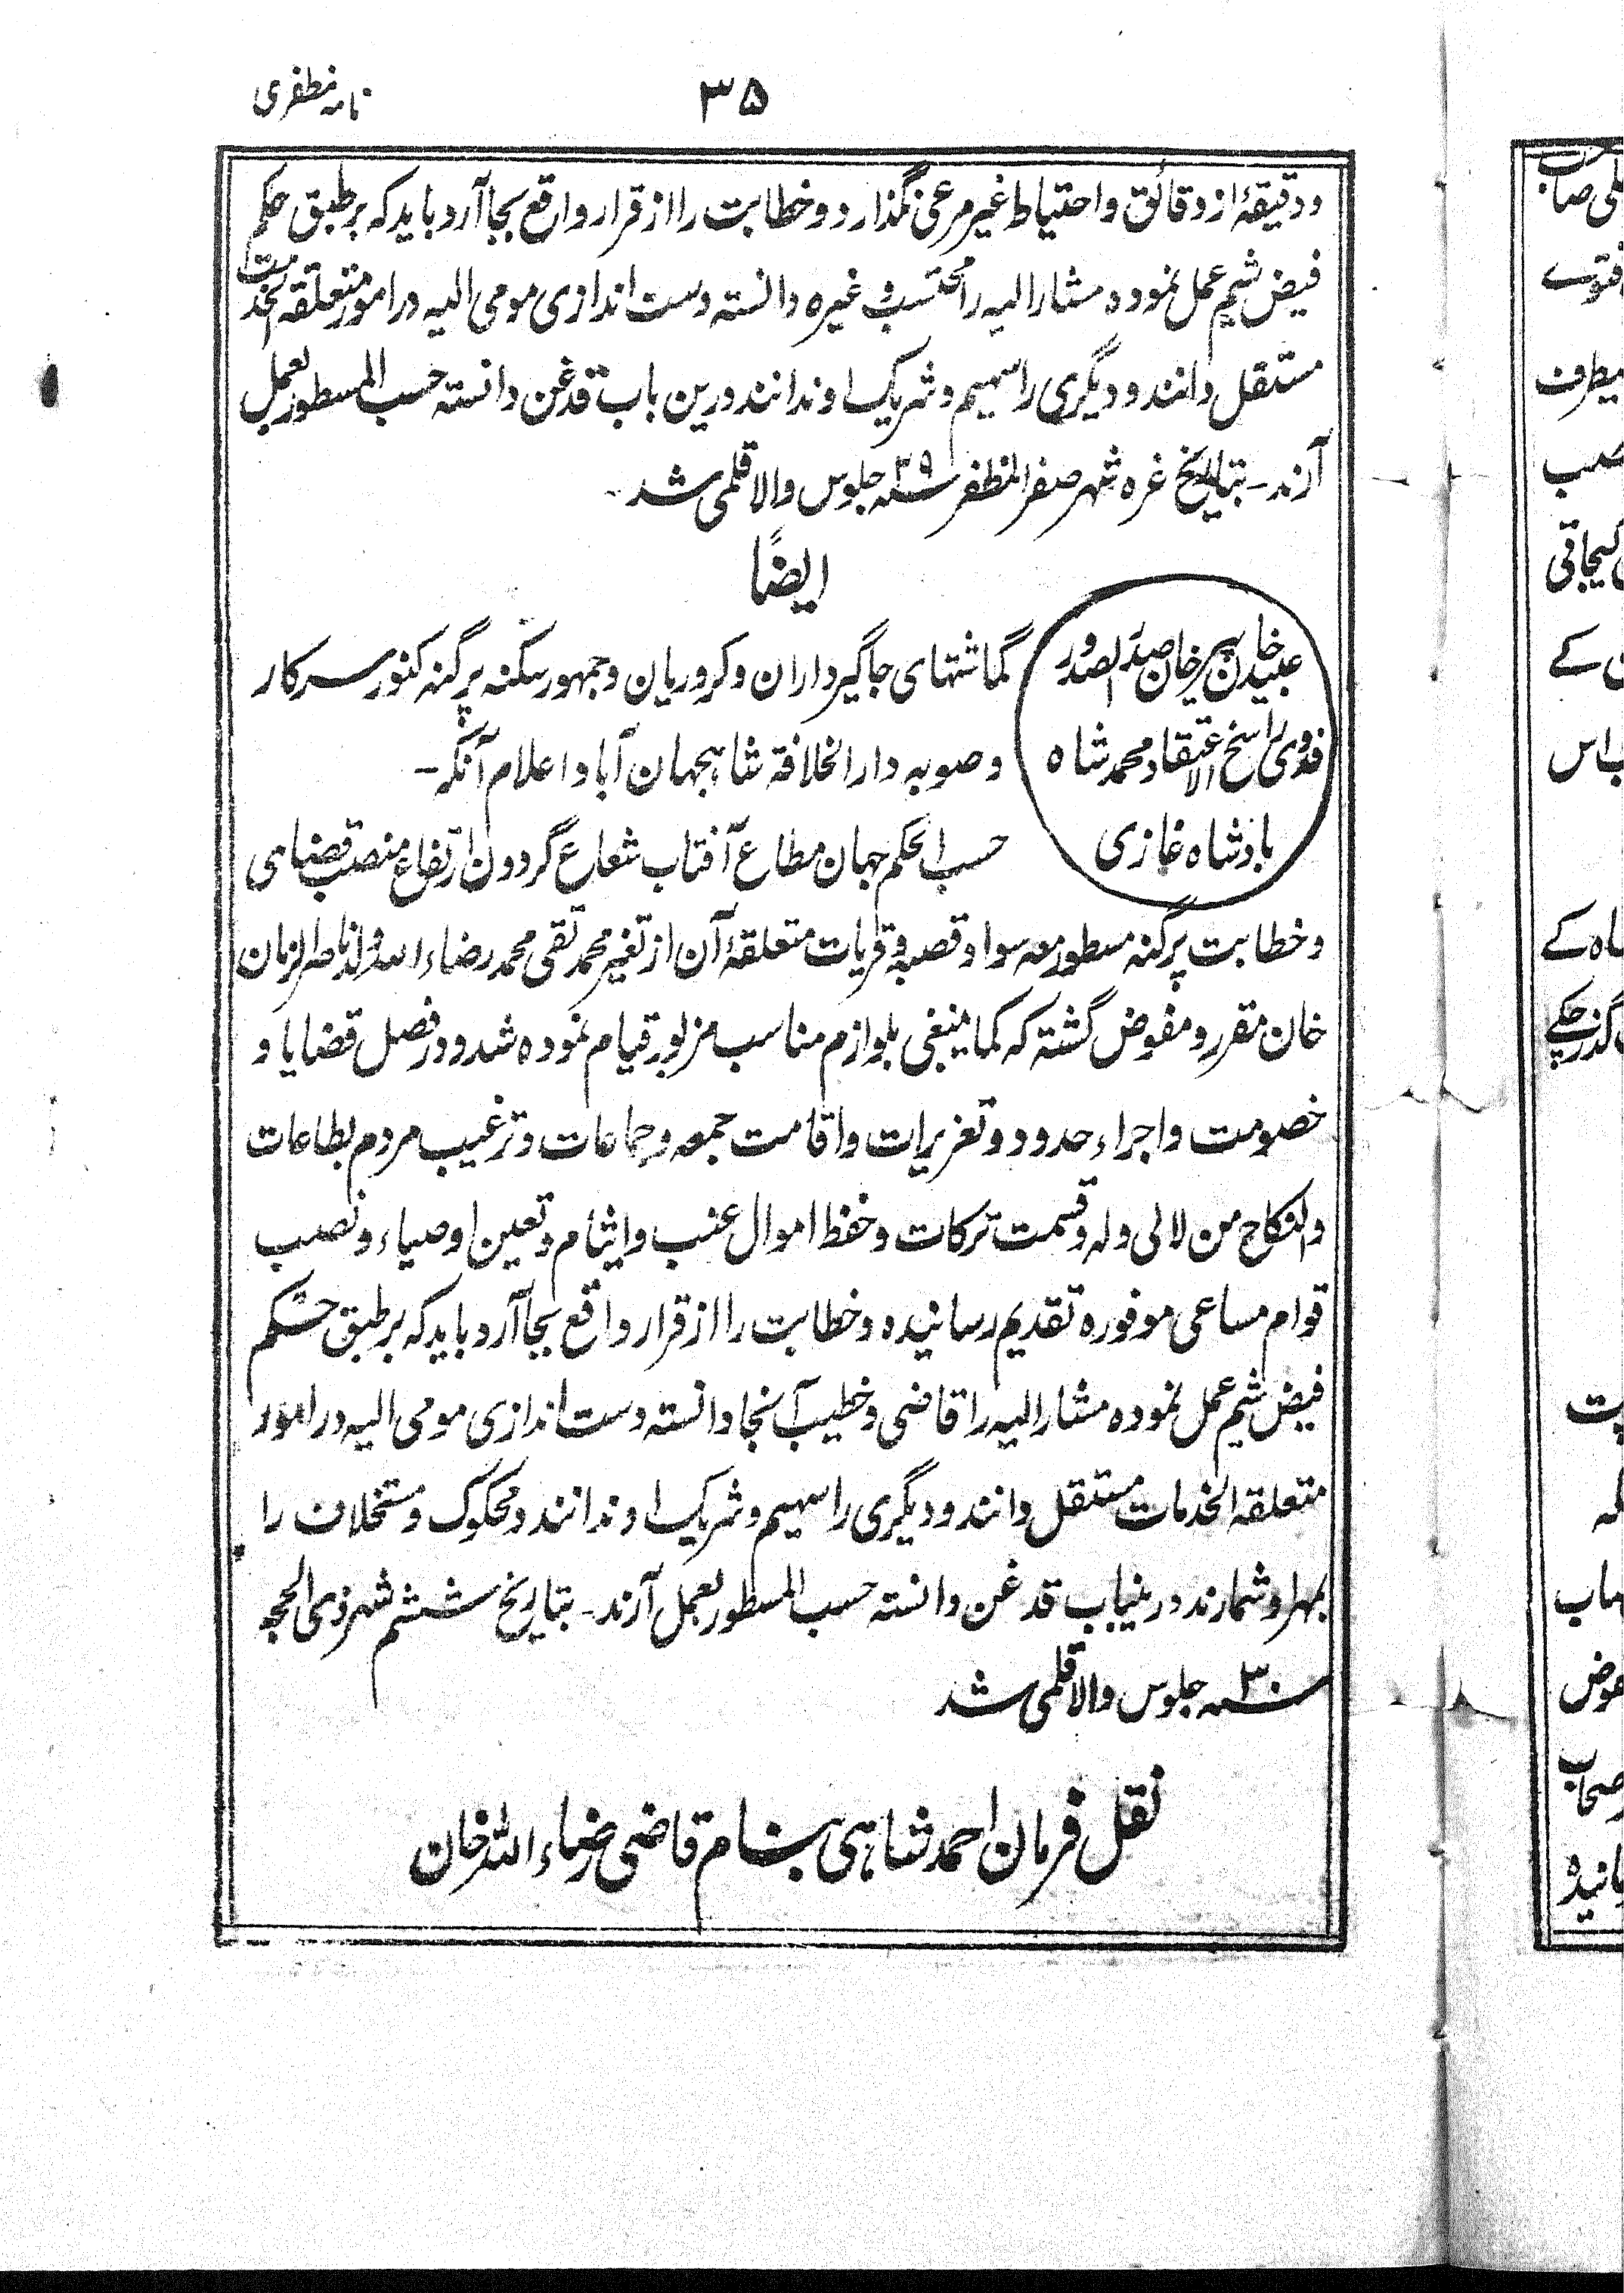 نامہ مظفری
۳۵
و دقیقۂ از دقائق و احتیاط غیر مرعی نگذارد و خطابت را از قرار واقع بجا آرد باید کہ بر طبق حکم
فیض شیم عمل نمودہ مشارالیہ را محتسب و غیرہ دانستہ دست اندازی مومی الیہ در امور متعلقہ بخدمت
مستقل دانند و دیگری را سہیم و شریک او ندانند درین باب قدغن دانستہ حسب المسطور بعمل
آرند۔ بتاریخ غرہ شہر صفر المظفر ۲۹ سنہ جلوس والا قلمی شد۔
ایضًا
عبید خان بہیر خان صدر الصدور
فدوی راسخ الاعتقاد محمد شاہ
بادشاہ غازی
گماشتہای جاگیرداران و کروریان و جمہور سکنہ پرگنہ کنور سرکار
و صوبہ دار الخلافۃ شاہجہان آباد اعلام آنکہ۔
حسب الحکم جہان مطاع آفتاب شعاع گردون ارتفاع منصب قضای
و خطابت پرگنہ مسطور معہ سواد قصبہ و قریات متعلقۂ آن از تغیر محمد تقی محمد رضاء اللہ ولد ناصر الزمان
خان مقرر و مفوض گشتہ کہ کما ینبغی بلوازم مناسب مزبور قیام نمودہ شد و در فصل قضایا و
خصومت و اجراء حدود و تعزیرات و اقامت جمعہ و جماعات و ترغیب مردم بطاعات
والنکاح من لا لی ولہ و قسمت ترکات و حفظ اموال عنب و ایتام و تعین اوصیاء و نصب
قوام مساعی موفورہ تقدیم رسانیدہ و خطابت را از قرار واقع بجا آرد باید کہ بر طبق حکم
فیض شیم عمل نمودہ مشارالیہ را قاضی و خطیب آنجا دانستہ دست اندازی مومی الیہ در امور
متعلقہ الخدمات مستقل دانند و دیگری را سہیم و شریک او ندانند و محکوک و مستخلات را
بمہر او شمارند درینباب قدغن دانستہ حسب المسطور بعمل آرند۔ بتاریخ ششم شہر ذی الحجہ
۳۰ سنہ جلوس والا قلمی شد
نقل فرمان احمد شاہی بنام قاضی رضاء اللہ خان